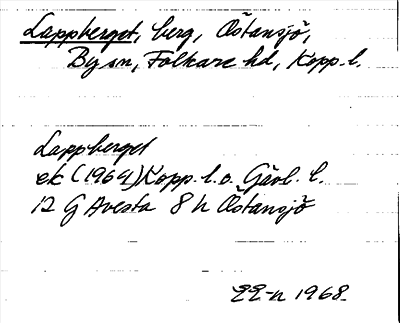 Lappberget, berg, Östansjö,
By sn, Folkare hd, Kopp. l.
Lappberget
ek (1964) Kopp. l. o. Gävl. l.
12 G Avesta 8 h Östansjö
EE-n 1968.